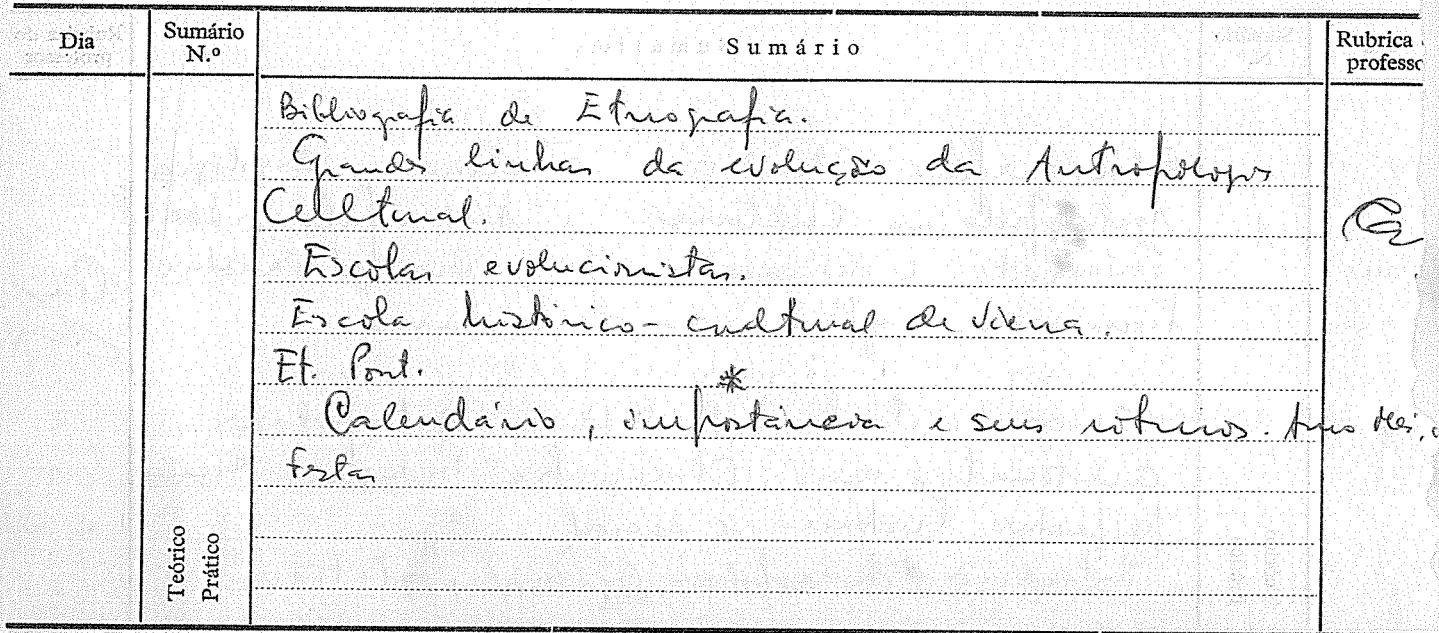 Dia Sumário N.º Sumário Rubrica professo
Bibliografia de Etnografia.
Grandes linhas da evolução da Antropologia
Cultural.
Escolas evolucionistas.
Escola histórico-cultural de Viena.
Et. Port.
*
Calendário, importância e seus ritmos. Ano
festas
Teórico
Prático